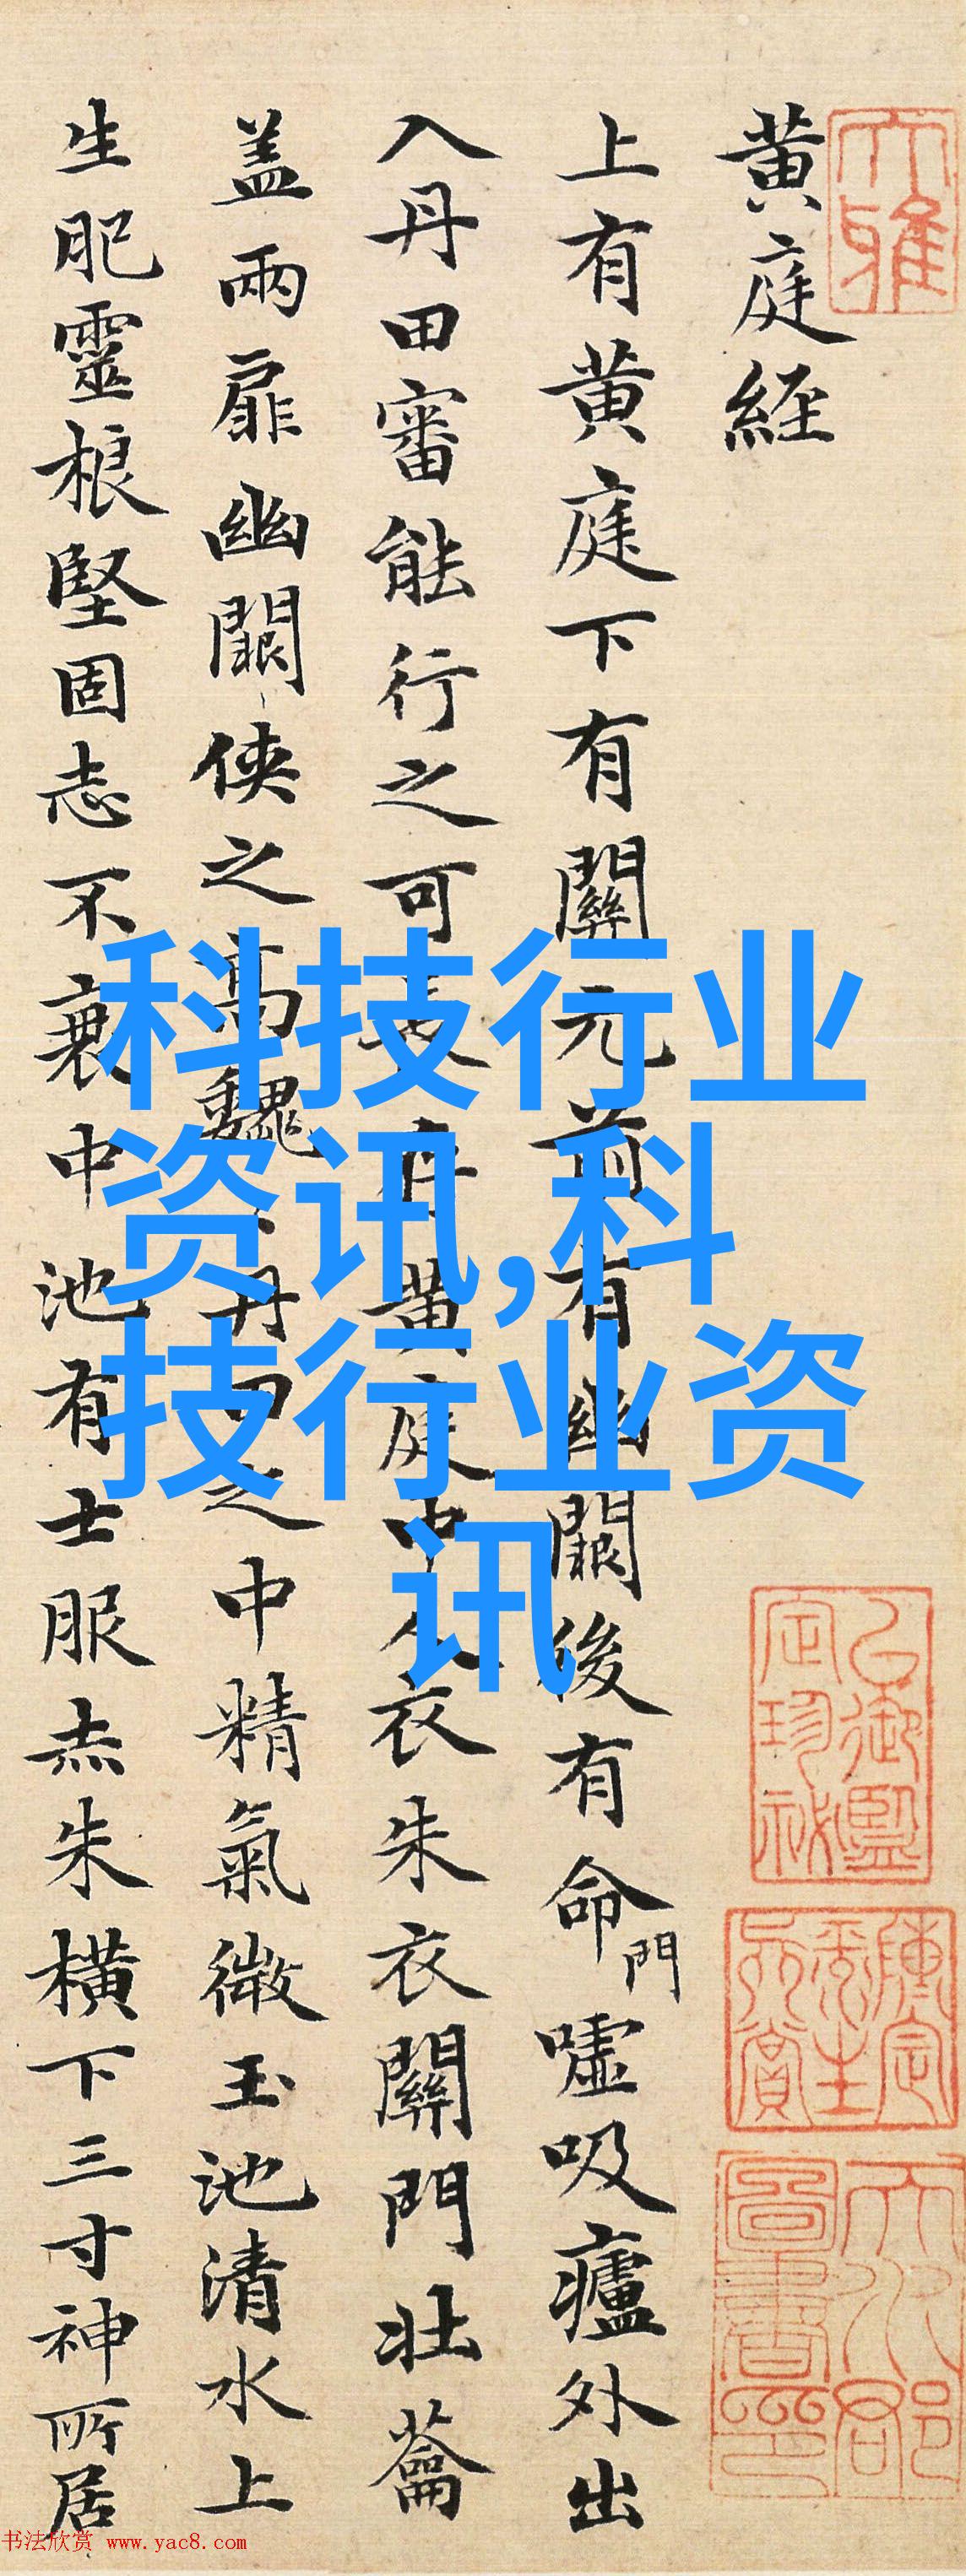 大雅
黄庭経
上有黄庭下有關元前有幽闕後有命門嘘吸廬外出
入丹田審能行之可長存黄庭中人衣朱衣關門壮蘥
盖兩扉幽闕侠之高巍巍丹田之中精氣微玉池清水上
生肥靈根堅固志不衰中池有士服赤朱横下三寸神所居
科技行业
资讯,科
技行业资
讯
书法欣赏 www.yac8.com